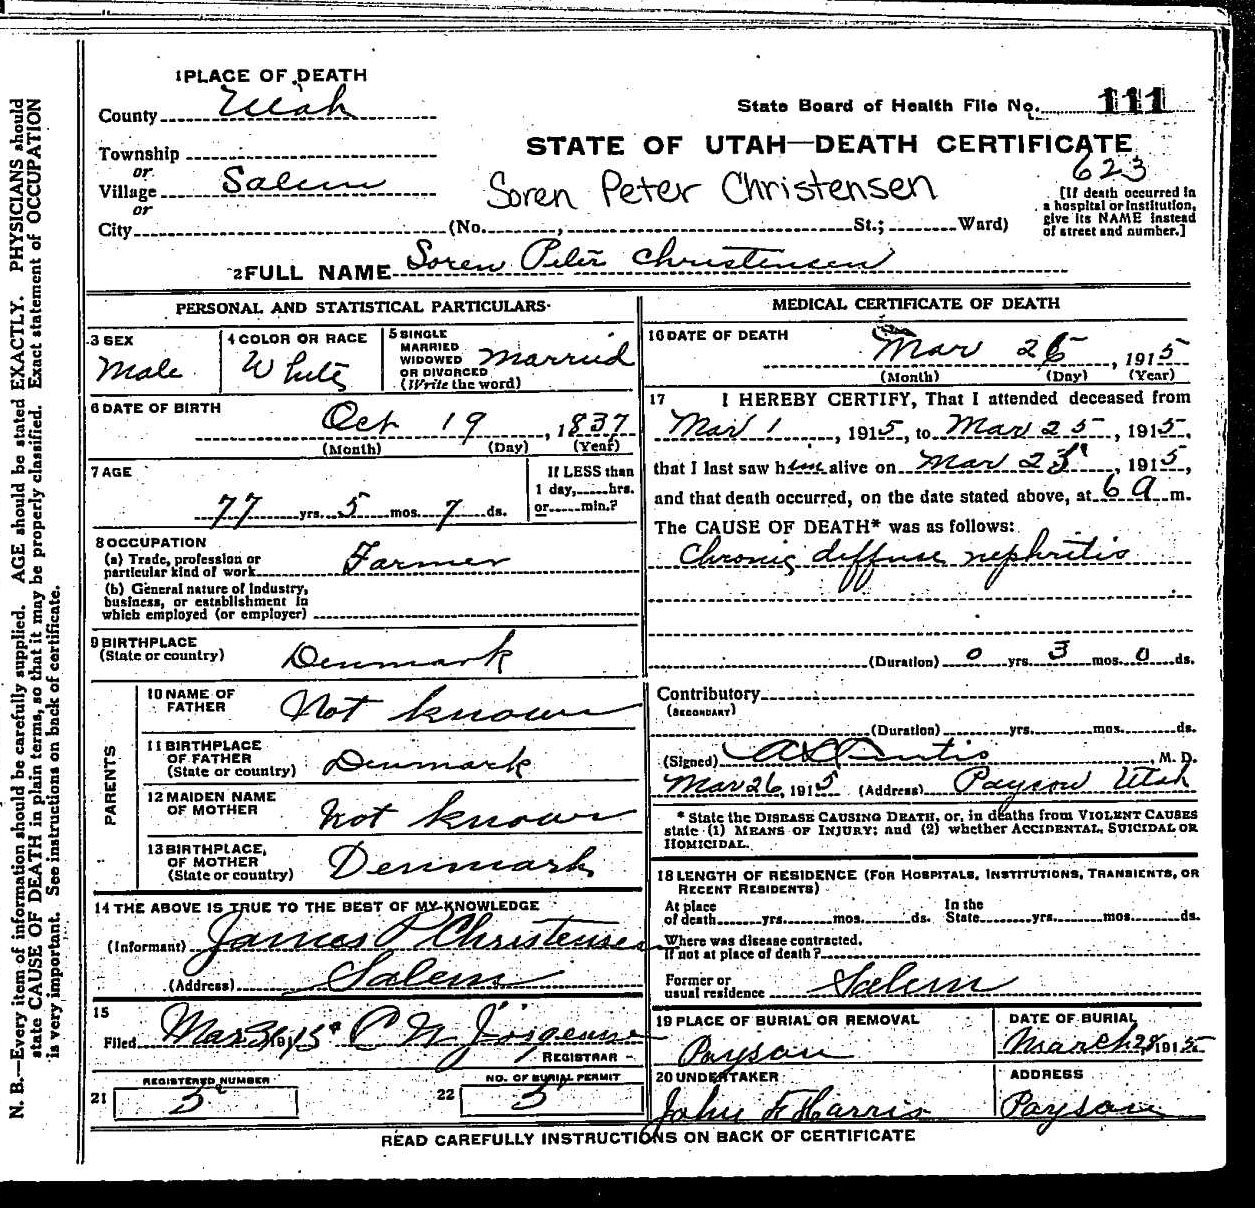 1 PLACE OF DEATH
County Utah
State Board of Health File No. 111
Township
or
Village Salem
or
City (No. , St.; Ward)
STATE OF UTAH—DEATH CERTIFICATE
623
Soren Peter Christensen
[If death occurred in
a hospital or institution,
give its NAME instead
of street and number.]
2 FULL NAME Soren Peter Christensen
PERSONAL AND STATISTICAL PARTICULARS
3 SEX
Male
4 COLOR OR RACE
White
5 SINGLE
MARRIED
WIDOWED
OR DIVORCED
(Write the word)
Married
6 DATE OF BIRTH
Oct 19, 1837
(Month) (Day) (Year)
7 AGE
77 yrs. 5 mos. 7 ds.
If LESS than
1 day, hrs.
or min.?
8 OCCUPATION
(a) Trade, profession or
particular kind of work Farmer
(b) General nature of industry,
business, or establishment in
which employed (or employer)
9 BIRTHPLACE
(State or country) Denmark
PARENTS
10 NAME OF
FATHER Not known
11 BIRTHPLACE
OF FATHER
(State or country) Denmark
12 MAIDEN NAME
OF MOTHER Not known
13 BIRTHPLACE,
OF MOTHER
(State or country) Denmark
14 THE ABOVE IS TRUE TO THE BEST OF MY KNOWLEDGE
(Informant) James P Christensen
(Address) Salem
15
Filed Mar 191 5 C N Jorgensen
REGISTRAR
REGISTERED NUMBER
21 5
NO. OF BURIAL PERMIT
22 5
MEDICAL CERTIFICATE OF DEATH
16 DATE OF DEATH
Mar 26, 1915
(Month) (Day) (Year)
17 I HEREBY CERTIFY, That I attended deceased from
Mar 1, 1915, to Mar 25, 1915,
that I last saw him alive on Mar 25, 1915,
and that death occurred, on the date stated above, at 6 a m.
The CAUSE OF DEATH* was as follows:
Chronic diffuse nephritis
(Duration) 0 yrs. 3 mos. 0 ds.
Contributory
(SECONDARY)
(Duration) yrs. mos. ds.
(Signed) Curtis, M. D.
Mar 26, 1915 (Address) Payson Utah
* State the DISEASE CAUSING DEATH, or, in deaths from VIOLENT CAUSES
state (1) MEANS OF INJURY; and (2) whether ACCIDENTAL, SUICIDAL OR
HOMICIDAL.
18 LENGTH OF RESIDENCE (FOR HOSPITALS, INSTITUTIONS, TRANSIENTS, OR
RECENT RESIDENTS)
At place
of death yrs. mos. ds.
In the
State yrs. mos. ds.
Where was disease contracted,
if not at place of death?
Former or
usual residence Salem
19 PLACE OF BURIAL OR REMOVAL
Payson
DATE OF BURIAL
March 28 1915
20 UNDERTAKER
John F Harris
ADDRESS
Payson
READ CAREFULLY INSTRUCTIONS ON BACK OF CERTIFICATE
N. B.—Every item of information should be carefully supplied. AGE should be stated EXACTLY. PHYSICIANS should
state CAUSE OF DEATH in plain terms, so that it may be properly classified. Exact statement of OCCUPATION
is very important. See instructions on back of certificate.